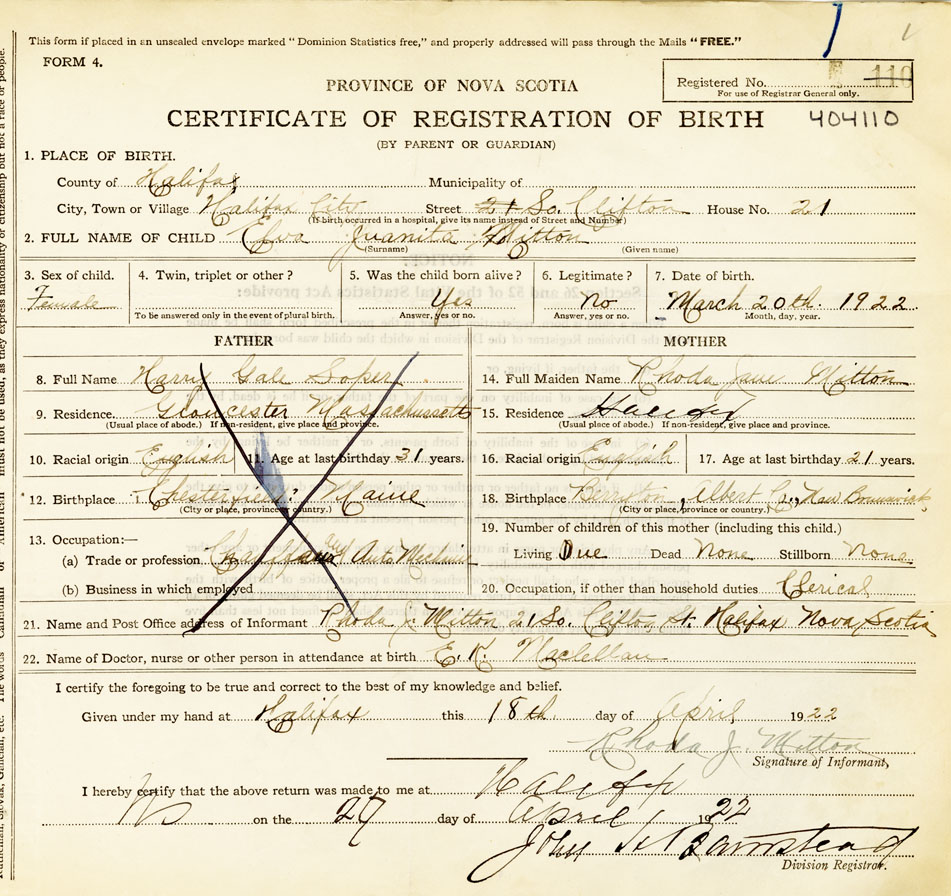 This form if placed in an unsealed envelope marked "Dominion Statistics free," and properly addressed will pass through the Mails "FREE."
FORM 4.
PROVINCE OF NOVA SCOTIA
Registered No. 110
For use of Registrar General only.
CERTIFICATE OF REGISTRATION OF BIRTH 404110
(BY PARENT OR GUARDIAN)
1. PLACE OF BIRTH.
County of Halifax Municipality of
City, Town or Village Halifax City Street 21 So. Clifton House No. 21
(If birth occurred in a hospital, give its name instead of Street and Number)
2. FULL NAME OF CHILD Eva Juanita Mitton
(Surname) (Given name)
3. Sex of child. 4. Twin, triplet or other? 5. Was the child born alive? 6. Legitimate? 7. Date of birth.
Female Yes No March 20th. 1922
To be answered only in the event of plural birth. Answer, yes or no. Answer, yes or no. Month, day, year.
FATHER MOTHER
8. Full Name Harry Gale Soper 14. Full Maiden Name Rhoda Jane Mitton
9. Residence. Gloucester Massachussetts 15. Residence Halifax
(Usual place of abode.) If non-resident, give place and province. (Usual place of abode.) If non-resident, give place and province.
10. Racial origin English 11. Age at last birthday 31 years. 16. Racial origin English 17. Age at last birthday 21 years.
12. Birthplace Maine 18. Birthplace Albert Co., New Brunswick
(City or place, province or country.) (City or place, province or country.)
13. Occupation:— 19. Number of children of this mother (including this child.)
(a) Trade or profession and Auto Mechanic Living One Dead None Stillborn None
(b) Business in which employed 20. Occupation, if other than household duties Clerical
21. Name and Post Office address of Informant Rhoda J. Mitton 21 So. Clifton St. Halifax Nova Scotia
22. Name of Doctor, nurse or other person in attendance at birth E. K. Maclellan.
I certify the foregoing to be true and correct to the best of my knowledge and belief.
Given under my hand at Halifax this 18th. day of April 1922
Rhoda J. Mitton
Signature of Informant,
I hereby certify that the above return was made to me at Halifax
on the 27 day of April 1922
John H Barnstead
Division Registrar.